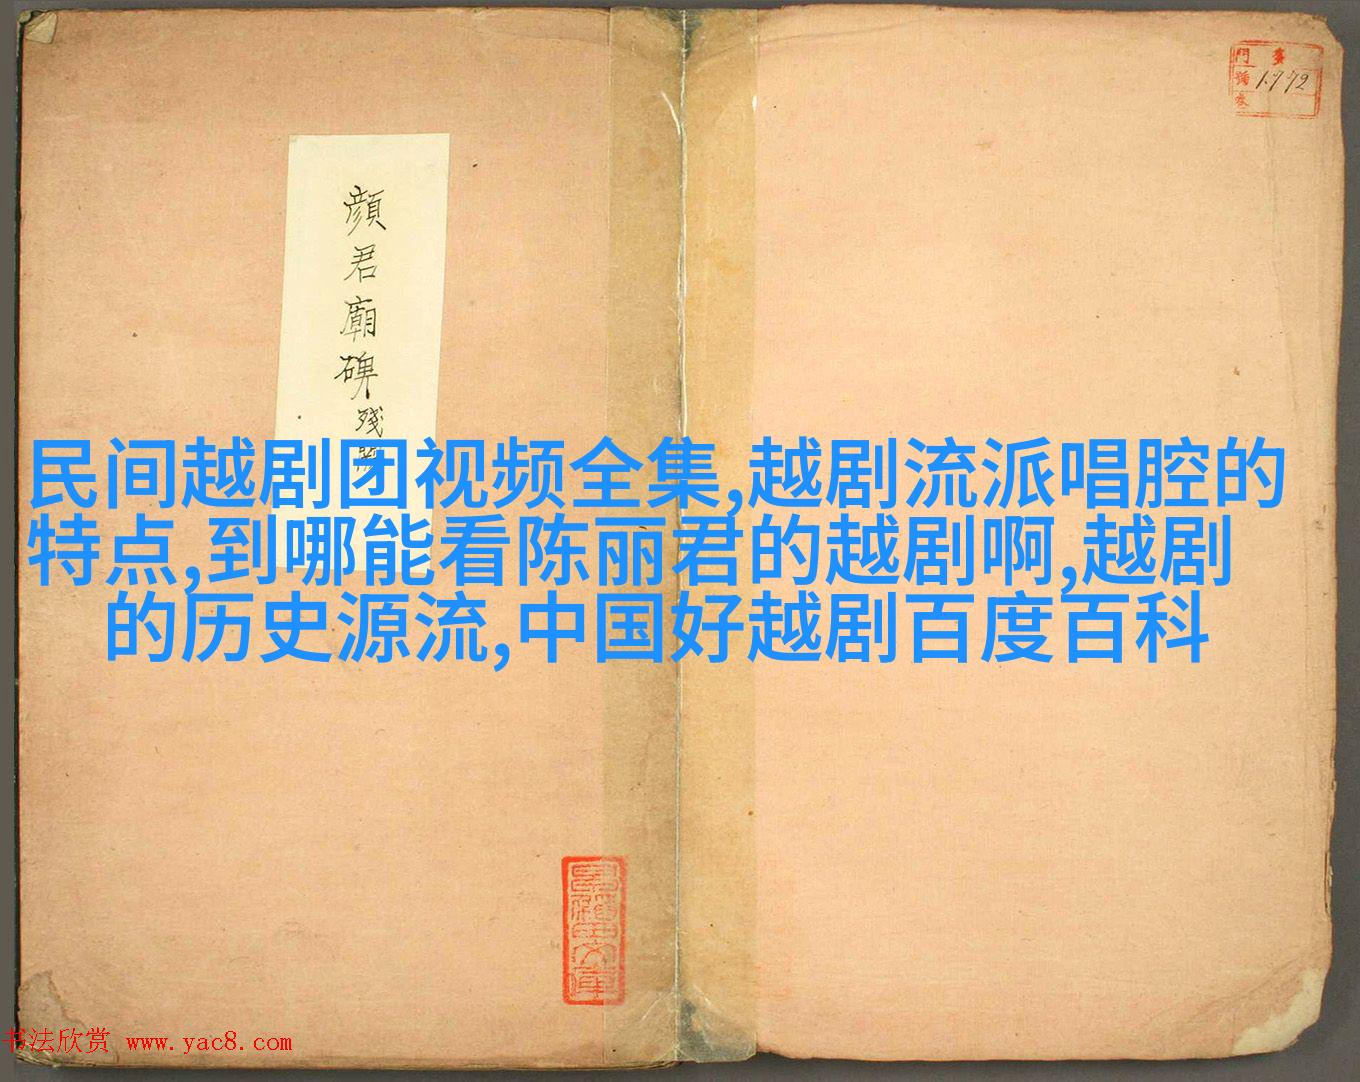 門 號 1772
卷
顔君廟碑殘
民间越剧团视频全集,越剧流派唱腔的
特点,到哪能看陈丽君的越剧啊,越剧
的历史源流,中国好越剧百度百科
书法欣赏 www.yac8.com